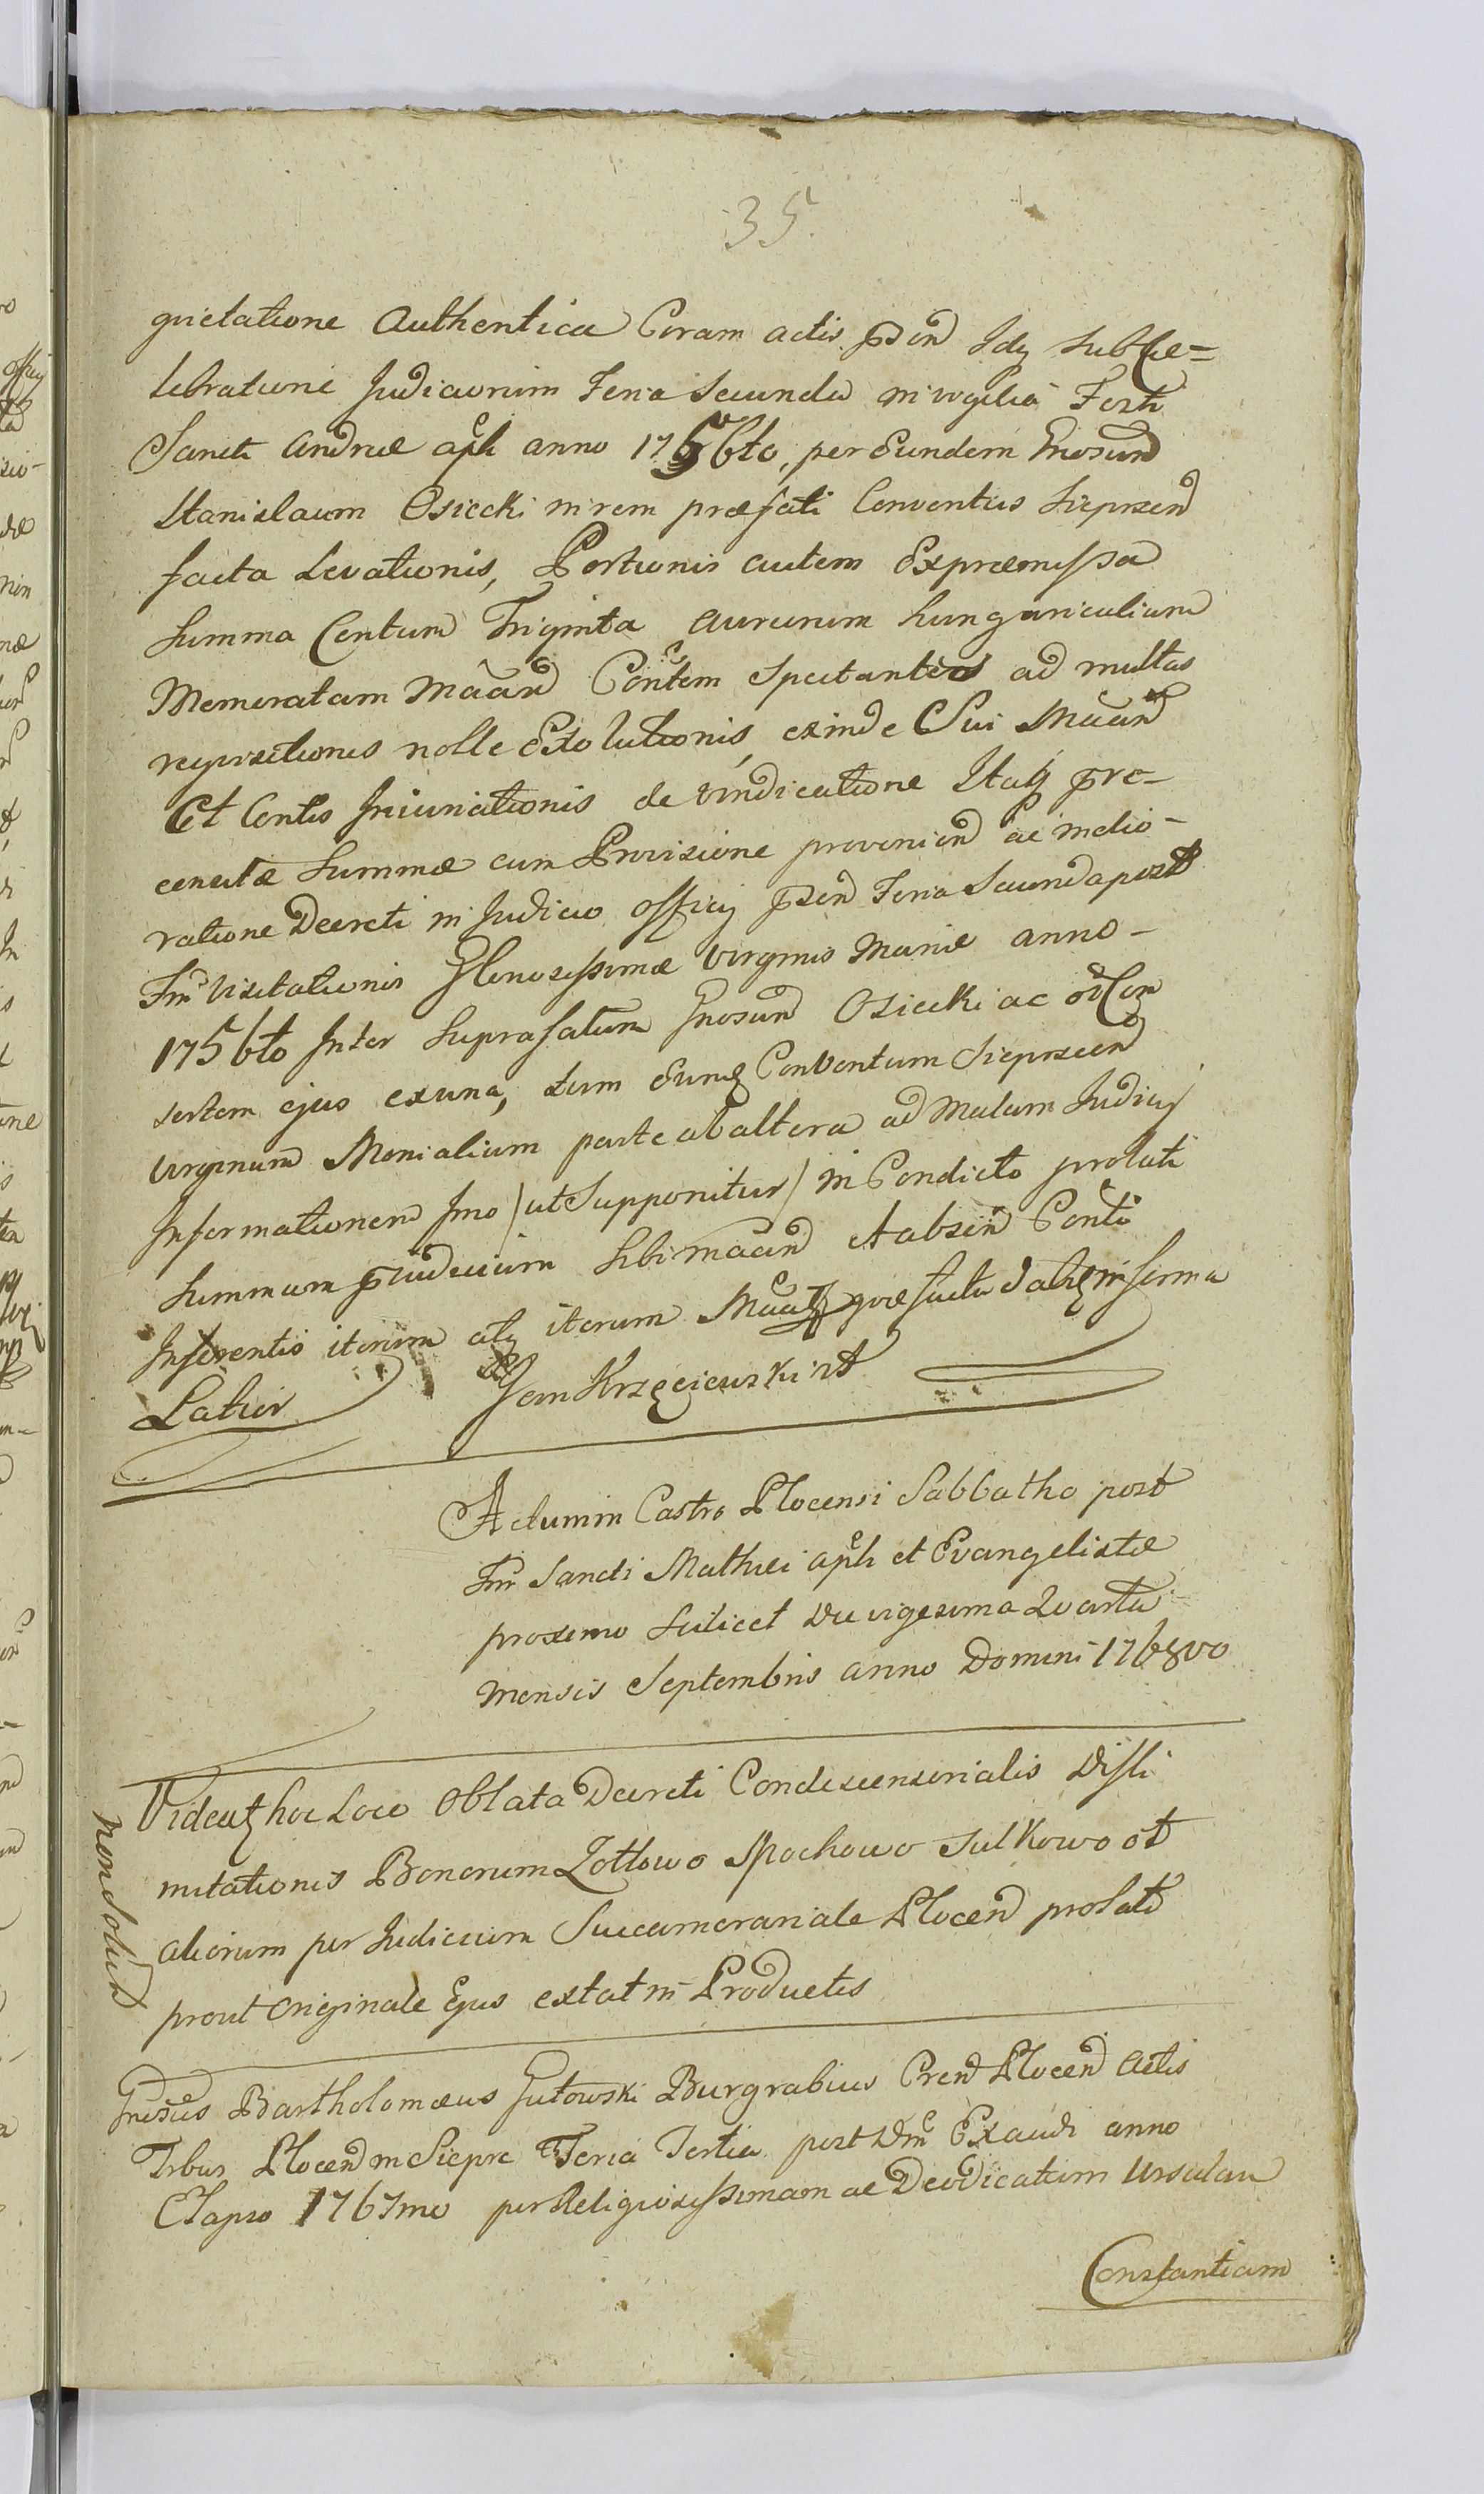 35.
quietatione Authentica Coram actis pnd Idq sub Ce=
lebratione Judiciorum Feria Secunda in vigilia Festi
Sancti Andreæ apli anno 1756to, per Eundem Gnosum
Stanislaum Osiecki in rem præfati Conventus Sieprcen
facta Levationis, Portionis autem Expræmissa
Summa Centum Triginta aurorum hungaricalium
Memoratam Maan Contem Spectantes ad multas
requisitiones nolle Exolutionis, exinde Sui Maan
Et Contis Iniuriationis de vindicatione Itaq pre-
cencitæ Summæ cum Provisione provenien ac melio-
ratione Decreti in Judicio Officij psen Feria Secunda post
Fm Visitationis Gloriosissimæ Virginis Mariæ anno-
1756to Inter Suprafatum Gnosum Osiecki ac Con
sortem ejus exuna, tum Eunq Conventum Sieprcen
Virginum Monialium parte ab altera ad Malam Judicij
Informationem Imo /ut Supponitur/ in Condicto prolati
Summum pjudicium Sibi maan et absen Conti
Inferentis iterum atq iterum præfacta datq in forma
Latior Jan Krzęciewski
Actum in Castro Plocensi Sabbatho post
Fm Sancti Mathæi apli et Evangelistæ
proximo Scilicet Die vigesima Quarta
Mensis Septembris anno Domini 1768vo
Videatz hoc Loco Oblata Decreti Condescensorialis Disli
mitationis Bonorum Zottowo Spochowo Sulkowo et
aliorum per Judicium Succamerariale Plocen prolati
prout Originale Ejus extat in Productis
non Solut
Gnosus Bartholomæus Gutowski Burgrabius Cren Plocen Actis
Trbus Plocen in Sieprc Feria Tertia post Dm Exaudi anno
Elapso 1767mo per Religiosissimam ac Deodicatam Ursulam
Constantiam